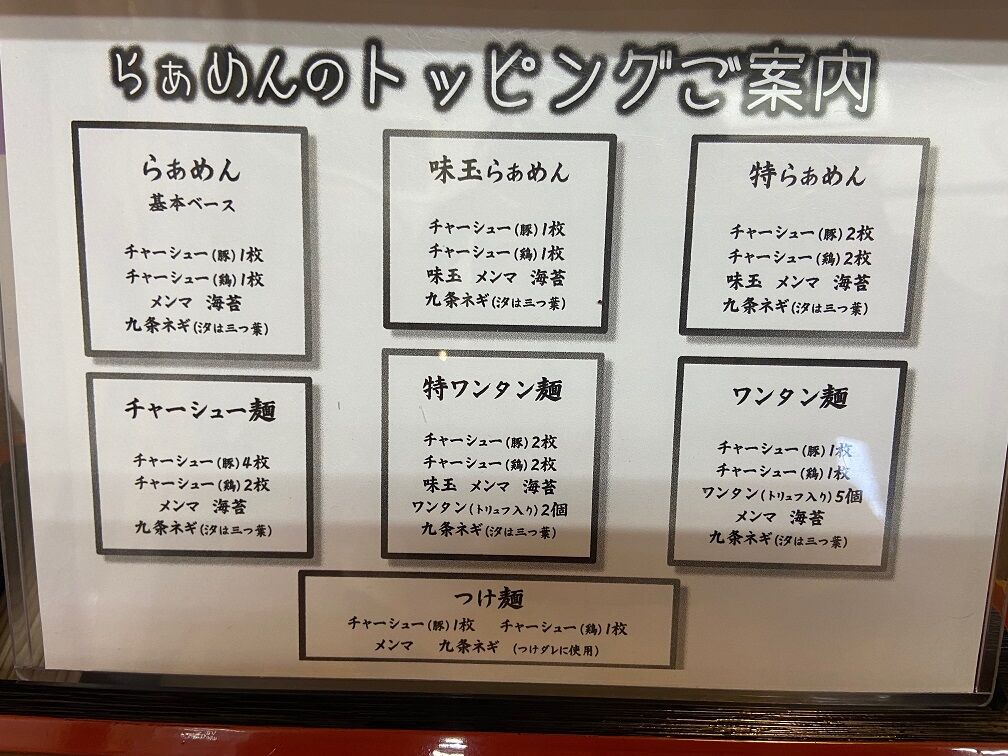 らぁめんのトッピングご案内
らぁめん
基本ベース
チャーシュー(豚)1枚
チャーシュー(鶏)1枚
メンマ 海苔
九条ネギ(汐は三つ葉)
味玉らぁめん
チャーシュー(豚)1枚
チャーシュー(鶏)1枚
味玉 メンマ 海苔
九条ネギ(汐は三つ葉)
特らぁめん
チャーシュー(豚)2枚
チャーシュー(鶏)2枚
味玉 メンマ 海苔
九条ネギ(汐は三つ葉)
チャーシュー麺
チャーシュー(豚)4枚
チャーシュー(鶏)2枚
メンマ 海苔
九条ネギ(汐は三つ葉)
特ワンタン麺
チャーシュー(豚)2枚
チャーシュー(鶏)2枚
味玉 メンマ 海苔
ワンタン(トリュフ入り)2個
九条ネギ(汐は三つ葉)
ワンタン麺
チャーシュー(豚)1枚
チャーシュー(鶏)1枚
ワンタン(トリュフ入り)5個
メンマ 海苔
九条ネギ(汐は三つ葉)
つけ麺
チャーシュー(豚)1枚 チャーシュー(鶏)1枚
メンマ 九条ネギ (つけダレに使用)